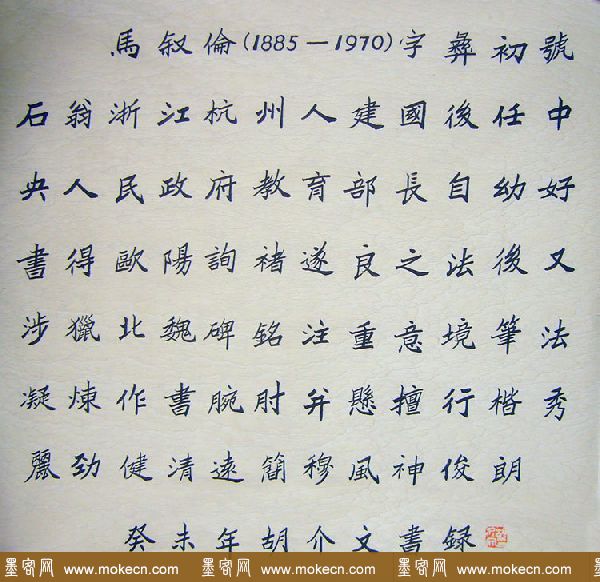 馬叙倫(1885—1970)字彝初號
石翁浙江杭州人建國後任中
央人民政府教育部長自幼好
書得歐陽詢褚遂良之法後又
涉獵北魏碑銘注重意境筆法
凝煉作書腕肘并懸擅行楷秀
麗勁健清遠簡穆風神俊朗
癸未年胡介文書録
墨客网 www.mokecn.com 墨客网 www.mokecn.com 墨客网 www.mokecn.com